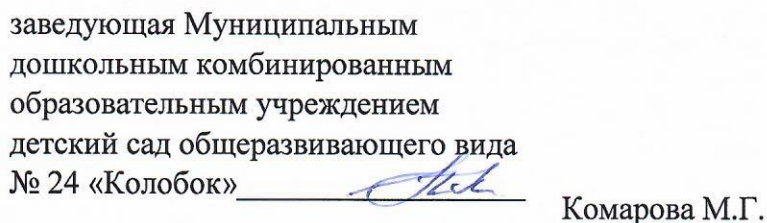 заведующая Муниципальным
дошкольным комбинированным
образовательным учреждением
детский сад общеразвивающего вида
№ 24 «Колобок»
Комарова М.Г.